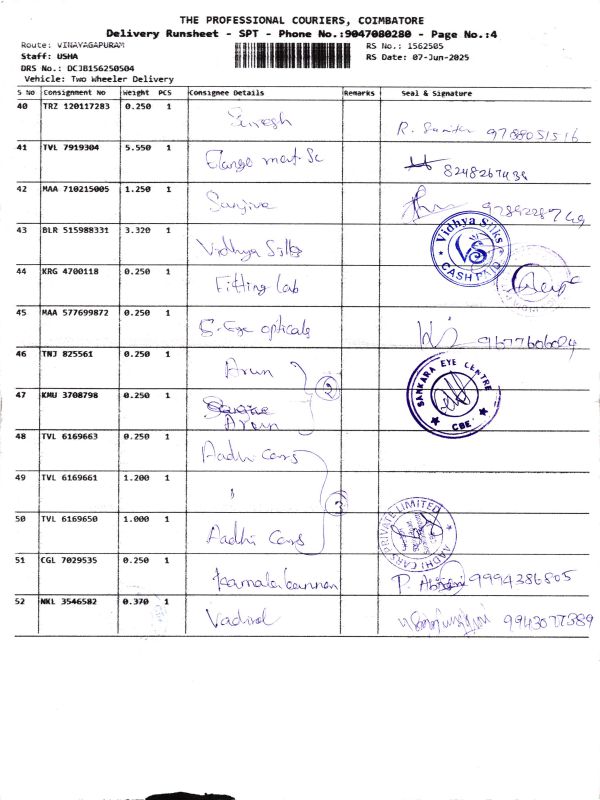 THE PROFESSIONAL COURIERS, COIMBATORE
Delivery Runsheet - SPT - Phone No.:9047080280 - Page No.:4
Route: VINAYAGAPURAM RS No.: 1562505
Staff: USHA RS Date: 07-Jun-2025
DRS No.: DCJB156250504
Vehicle: Two Wheeler Delivery
S No Consignment No Weight PCS Consignee Details Remarks Seal & Signature
40 TRZ 120117283 0.250 1
R. 9788051516
41 TVL 7919304 5.550 1
8248267439
42 MAA 710215005 1.250 1 Sanjiva
43 BLR 515988331 3.320 1 Vidhya Silks
Vidhya Silks VS CASH PAID
44 KRG 4700118 0.250 1 Fitting Lab
45 MAA 577699872 0.250 1 Eye opticals
9677606024
46 TNJ 825561 0.250 1 Arun
2
SANKARA EYE CENTRE CBE
47 KMU 3708798 0.250 1 Arun
48 TVL 6169663 0.250 1 Aadhi Cars
49 TVL 6169661 1.200 1 "
50 TVL 6169650 1.000 1 Aadhi Cars
AADHI CARS PRIVATE LIMITED
51 CGL 7029535 0.250 1 Kamalakannan P. 9994386805
52 NKL 3546582 0.370 1 9943077389